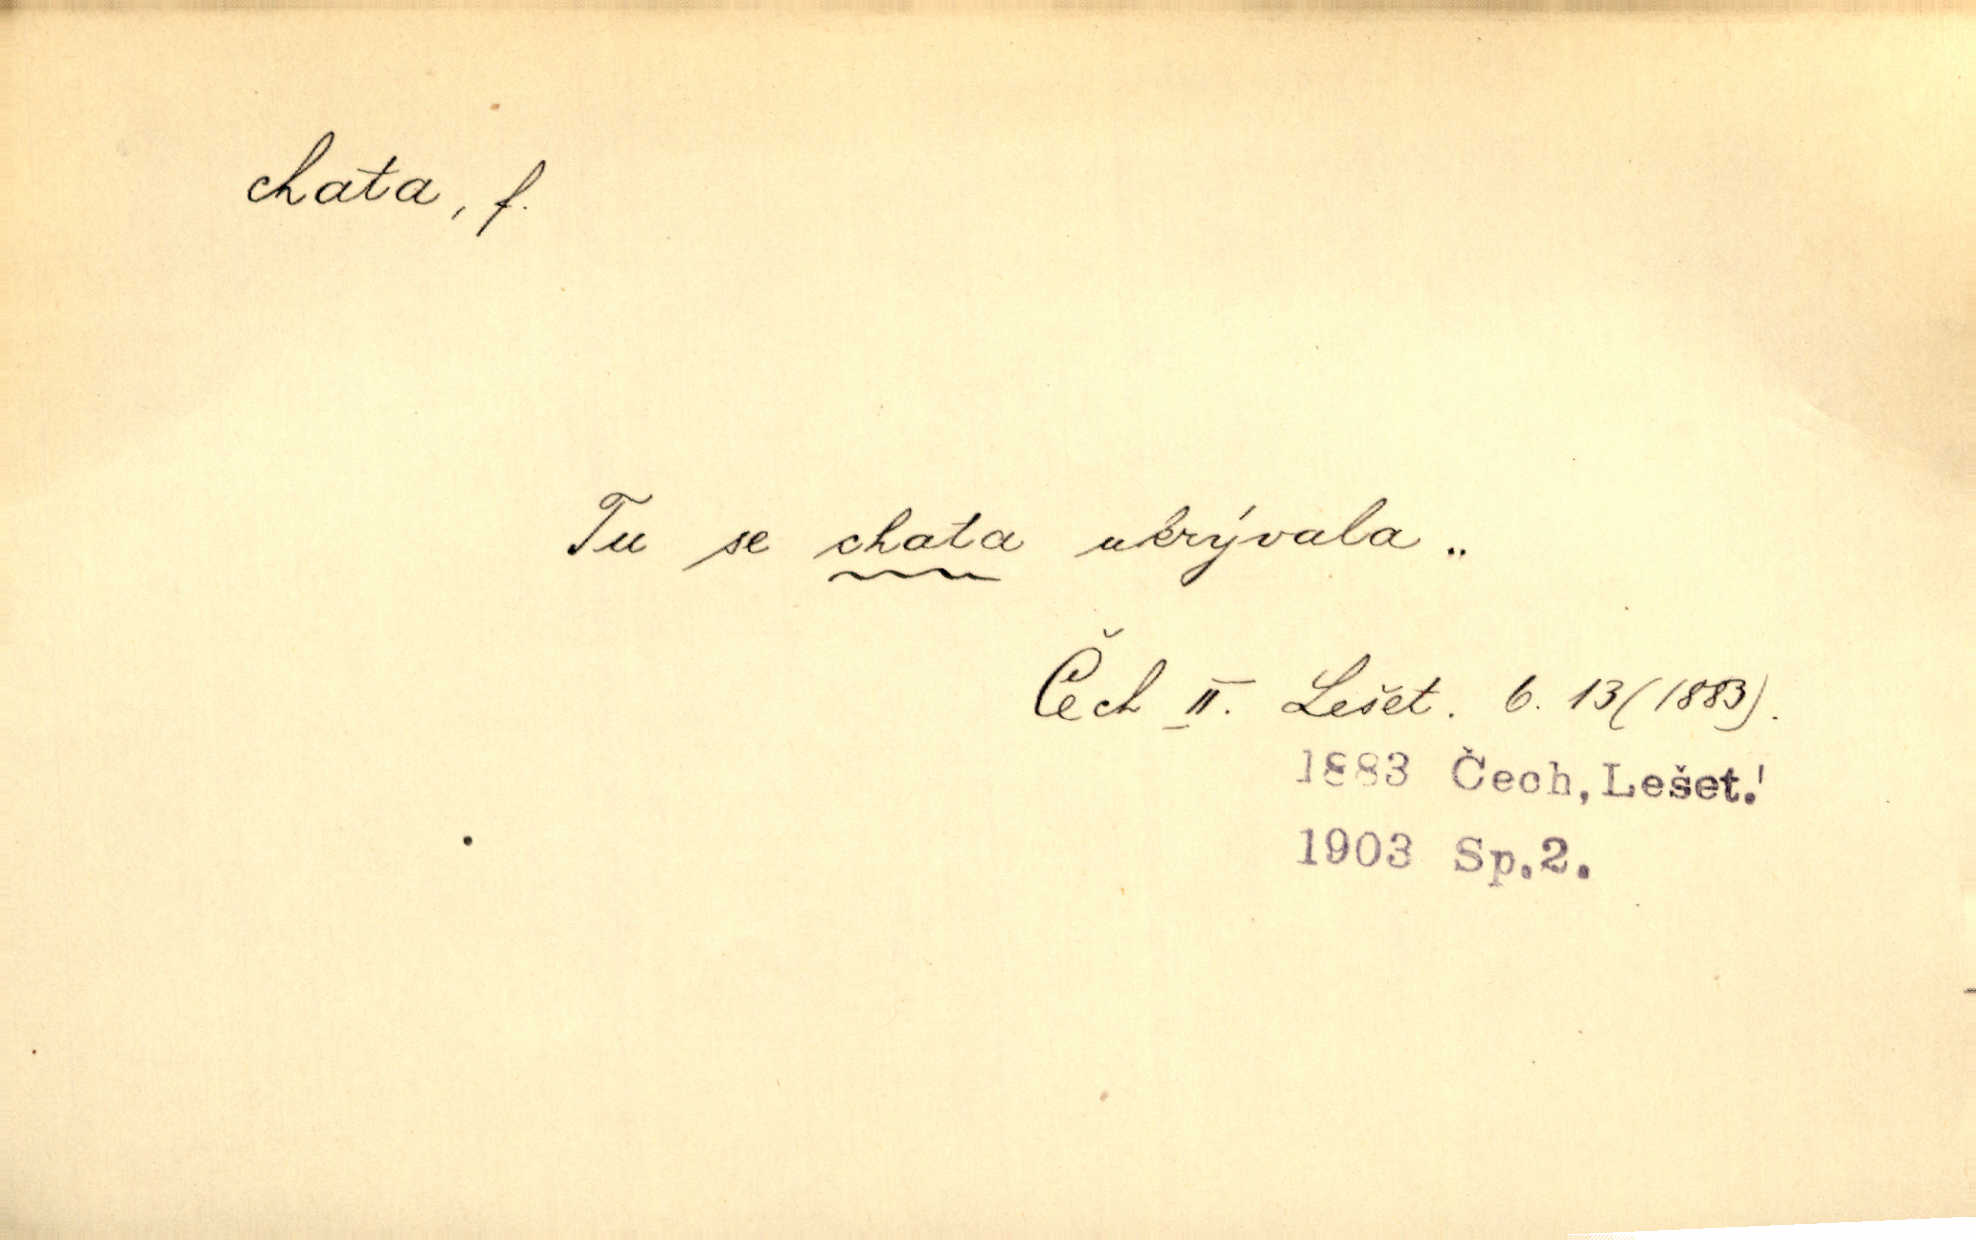 chata, f.
Tu se chata ukrývala ..
Čech II. Lešet. 6. 13 (1883).
1883 Čech, Lešet.!
1903 Sp.2.